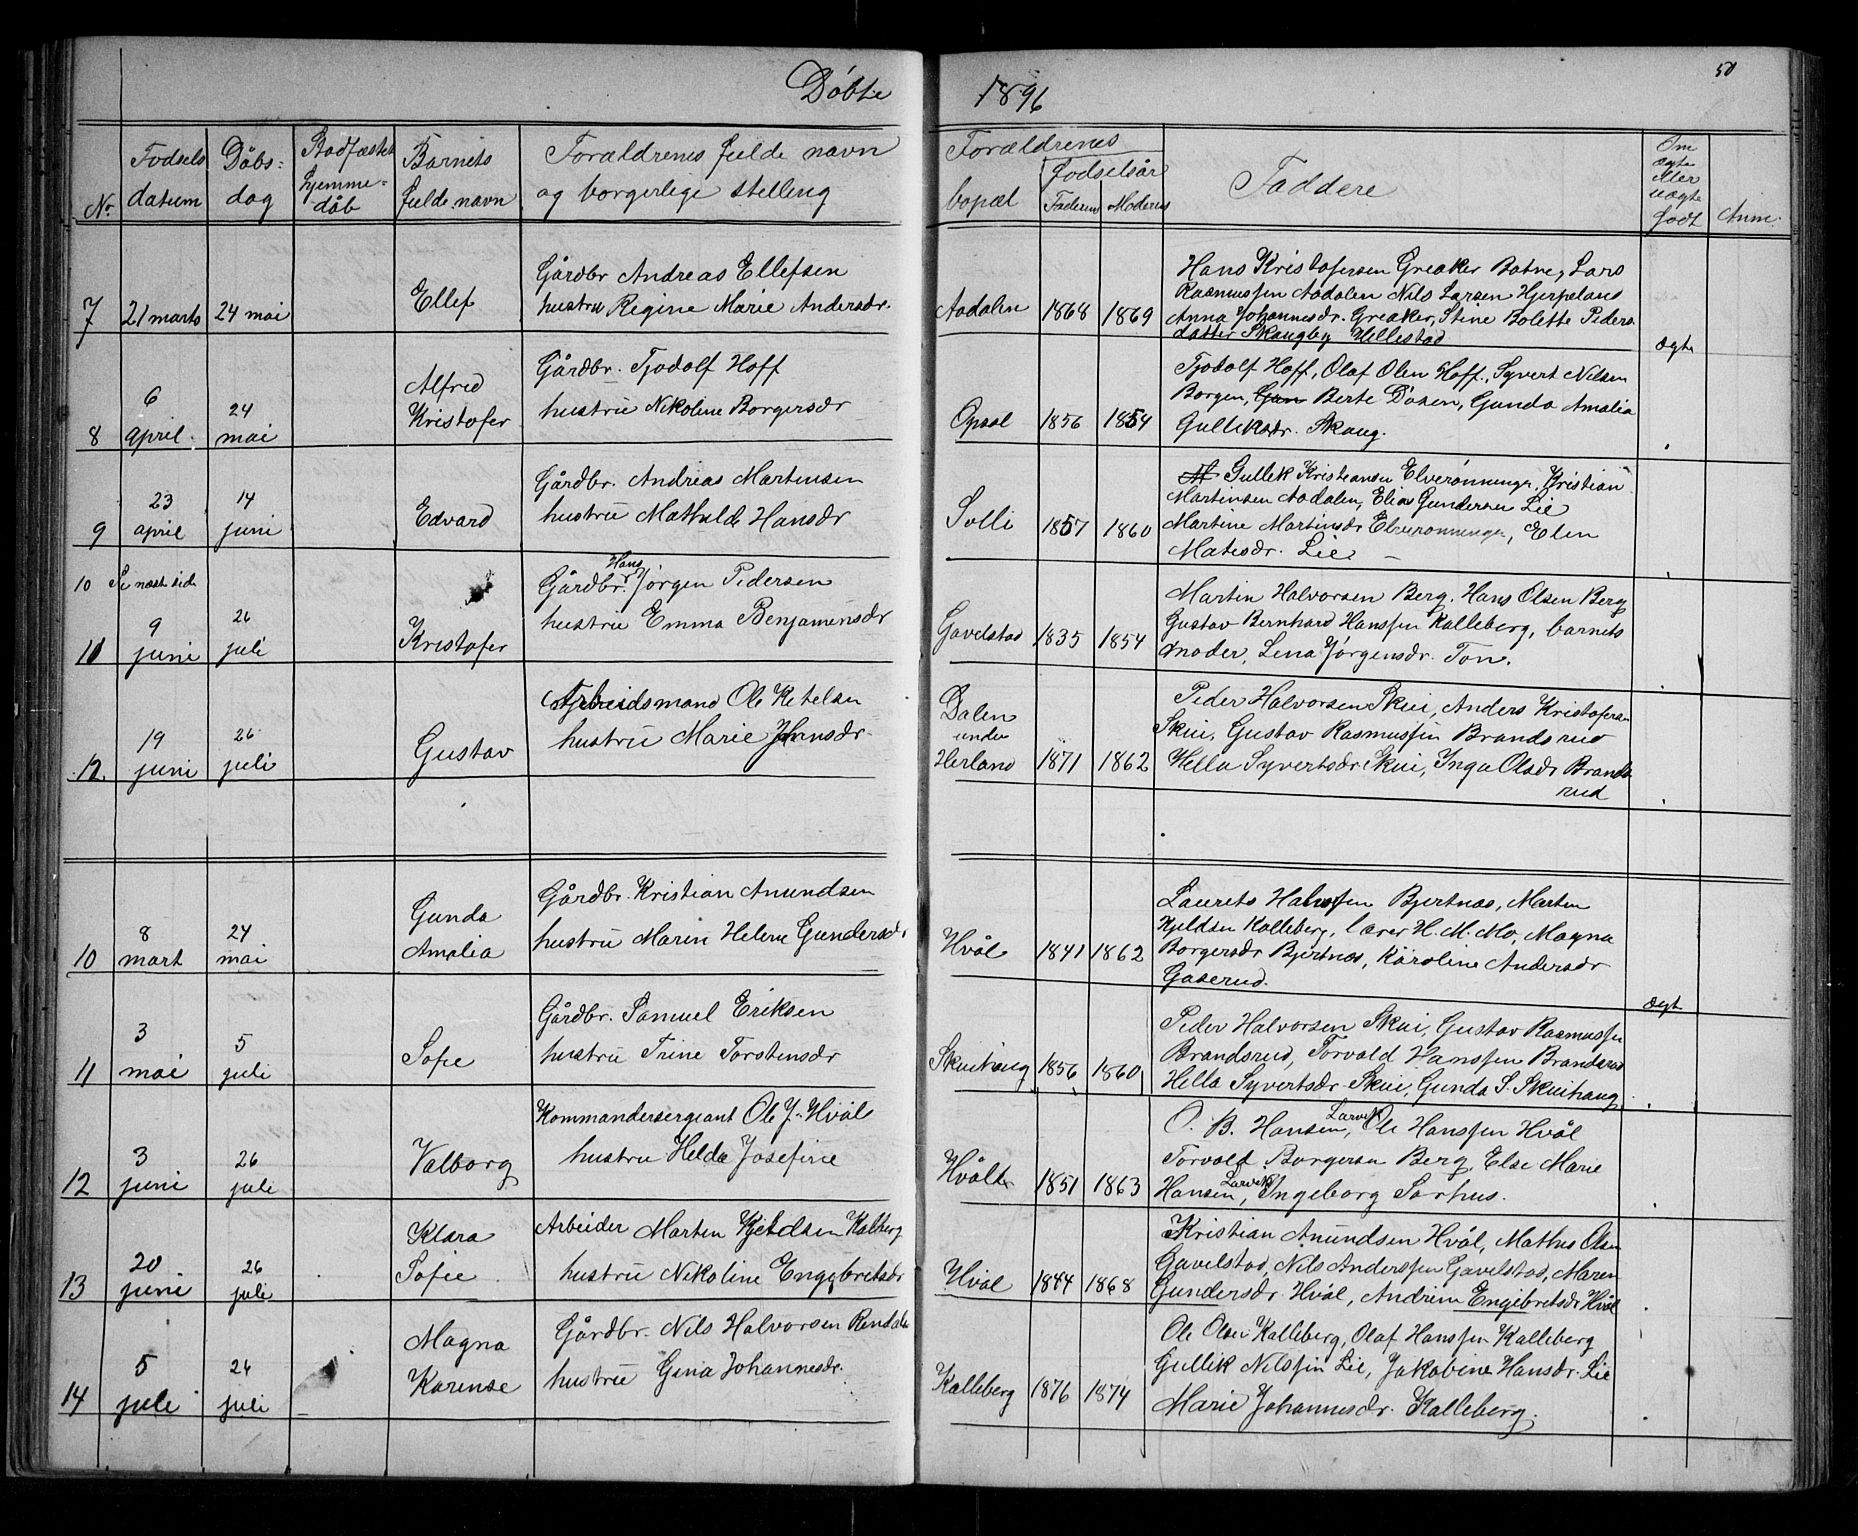 Döbte
1896
50
Nr.
Fodsels datum
Döbs-dag
Stadfæstet hjemme-döb
Barnets fulde navn
Forældrenes fulde navn og borgerlige stelling
Forældrenes bopæl
Fodselsår
Faderens
Moderens
Faddere
Om ægte eller uægte født
Anm.
7
21 marts
24 mai
Ellef
Gårdbr Andreas Ellefsen
hustru Regine Marie Andersdr.
Aadalen
1868
1869
Hans Kristofersen Greaker Botne, Lars
Rasmussen Aadalen Nils Larsen Hjerpeland
Anna Johannesdr. Greaker, Stine Bolette Peders
datter Skaugby Hillestad
ægte
8
6 april
24 mai
Alfred Kristofer
Gårdbr. Tjodolf Hoff
hustru Nikoline Borgersdr
Opsal
1856
1854
Tjodolf Hoff, Olaf Olsen Hoff, Syvert Nilsen
Borgen, Gun Berte Däsen, Gunda Amalia
Gulliksdr. Skaug.
9
23 april
14 juni
Edvard
Gårdbr. Andreas Martinsen
hustru Mathilde Hansdr
Solli
1857
1860
Gullik Kristiansen Elverønningen, Kristian
Martinsen Aadalen, Elias Gundersen Lie
Martine Martinsdr Elverønningen, Elen
Matisdr. Lie
10 Se næste side
11
9 juni
26 juli
Kristofer
Gårdbr. Hans Jörgen Pedersen
hustru Emma Benjaminsdr
Gavelstad
1835
1854
Martin Halvorsen Berg, Hans Olsen Berg
Gustav Bernhard Hanssen Kalleberg, barnets
moder, Lena Jörgensdr. Ton.
12.
19 juni
26 juli
Gustav
Arbeidsmand Ole Ketelsen
hustru Marie Jensdr.
Dalen under Herland
1871
1862
Peder Halvorsen Skui, Anders Kristofersen
Skui, Gustav Rasmussen Brandsrud
Hella Syvertsdr. Skui, Inga Olsdr Brands
rud
10
8 mart
24 mai
Gunda Amalia
Gårdbr. Kristian Anundsen
hustru Maren Helene Gundersdr
Hvål
1841
1862
Laurets Hanssen Bjertnæs, Marten
Kjeldsen Kalleberg, lærer H. M. Mo, Magna
Borgersdr Bjertnæs, Karoline Andersdr
Gaserud.
ægt
11
3 mai
5 juli
Sofie
Gårdbr. Samuel Eriksen
hustru Trine Torstensdr
Skuihaug
1856
1860
Peder Halvorsen Skui, Gustav Rasmussen
Brandsrud, Torvald Hanssen Brandsrud
Hella Syvertsdr. Skui, Gunda S. Skuihaug
12
3 juni
26 juli
Valborg
Kommandersergiant Ole J. Hvål
hustru Helda Josefine
Hvål
1851
1863
O. B. Hansen, Larvik Ole Hanssen Hvål
Torvald Borgersen Berg, Else Marie
Hansen, Larvik Ingeborg Sørhus.
13
20 juni
26 juli
Klara Sofie
Arbeider Marten Kjetelsen Kalleberg
hustru Nikoline Engebretsdr
Hvål
1844
1868
Kristian Anundsen Hvål, Mathis Olsen
Gavelstad, Nils Anderssen Gavelstad, Maren
Gundersdr. Hvål, Andrine Engebretsdr Hvål
14
5 juli
26 juli
Magna Karense
Gårdbr. Nils Halvorsen Rendalen
hustru Gina Johannesdr.
Kalleberg
1876
1874
Ole Olsen Kalleberg, Olaf Hanssen Kalleberg
Gullik Nilssen Lie, Jakobine Hansdr. Lie
Marie Johannesdr. Kalleberg.